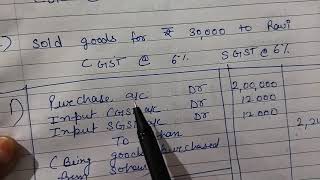 c) Sold goods for ₹ 30,000 to Ravi
CGST @ 6% SGST @ 6%
1) Purchase a/c Dr 2,00,000
Input CGST a/c Dr 12000
Input SGST a/c Dr 12000
To
(Being goods purchased